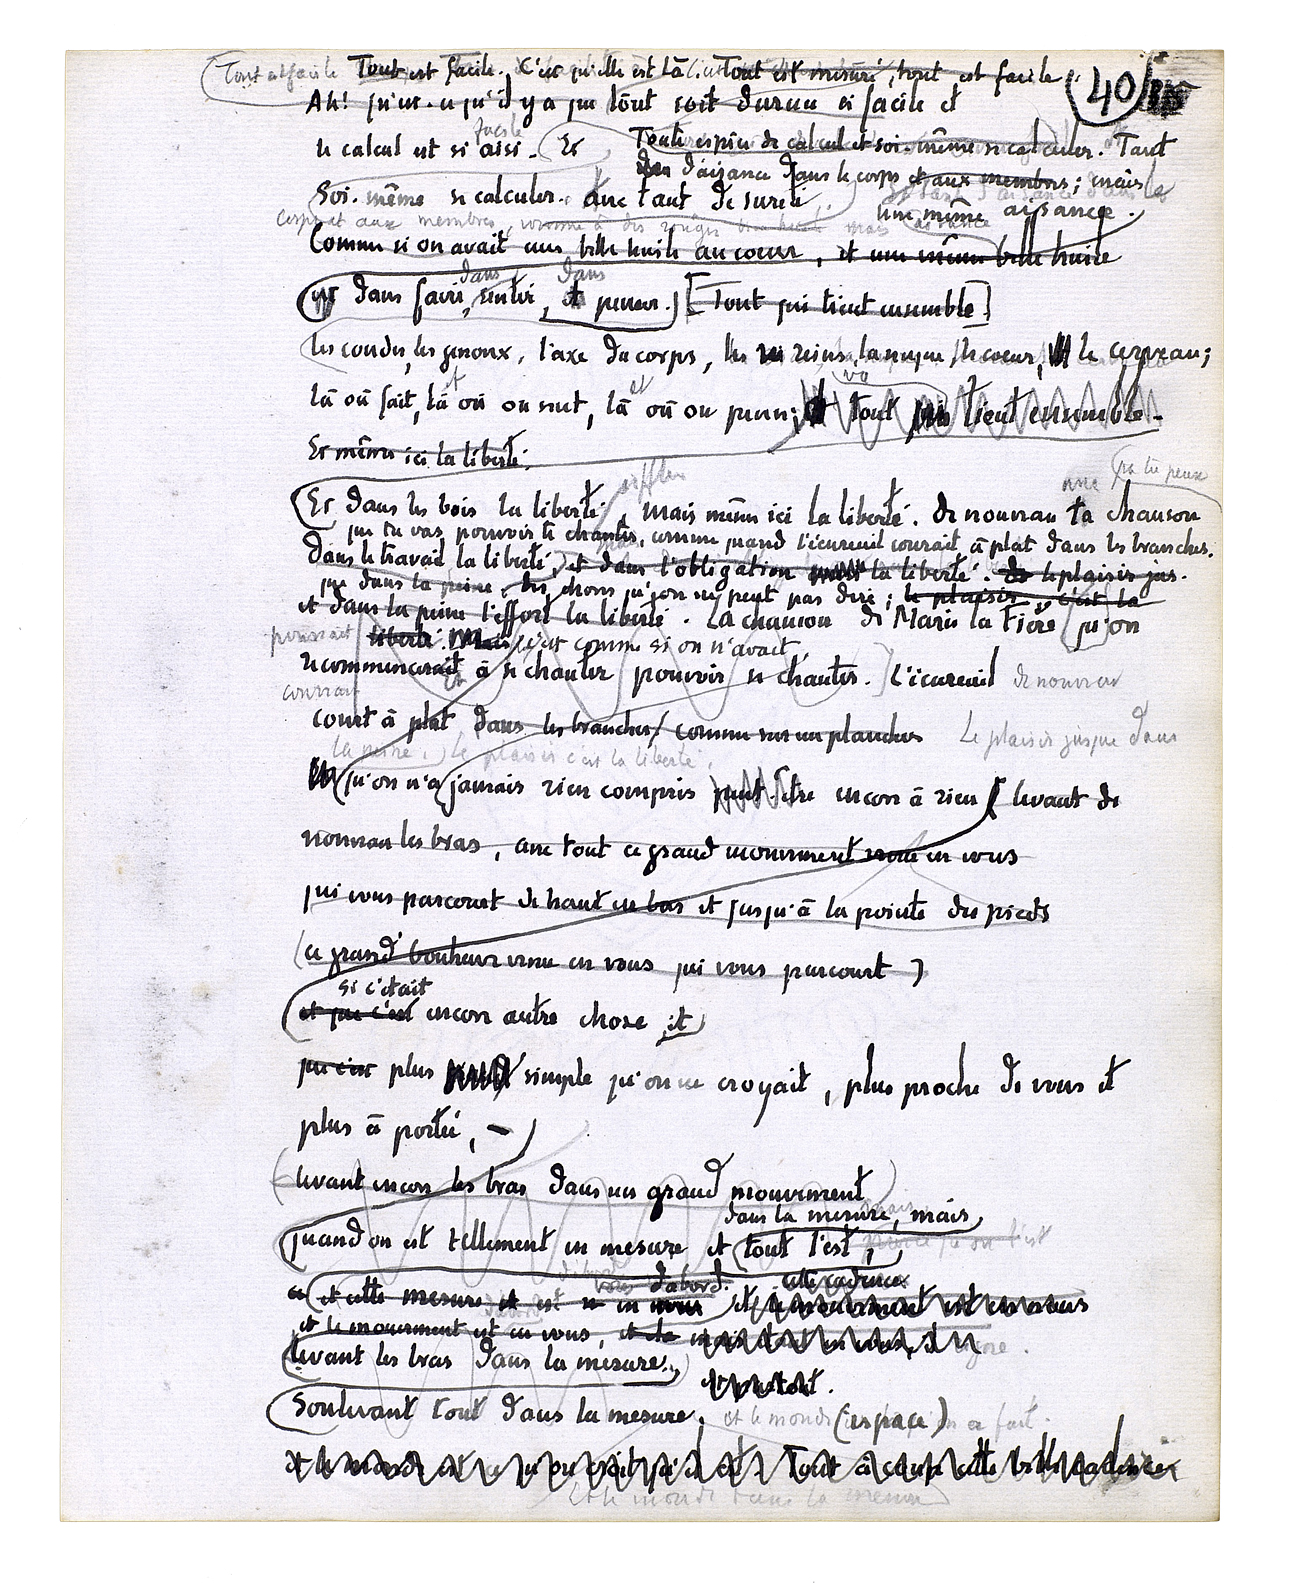 Tout est facile Tout est facile. C'est qu'elle est là. Tout est mesuré, tout est facile. 40
Ah! qu'est-ce qu'il y a que tout soit devenu si facile et
facile
le calcul est si aisé. Et Toute espèce de calcul et soi-même se calculer. Tant
d'aisance dans le corps et aux membres; mais
Soi-même se calculer. avec tant de sureté. une même aisance.
corps et aux membres, comme à des rouages bien huilés mais aisance
Comme si on avait une belle huile au coeur, et une même belle huile
dans dans
et dans faire, sentir, et penser. [Tout qui tient ensemble]
les coudes, les genoux, l'axe du corps, les reins, la nuque, le coeur, le cerveau;
et et va
là où fait, là où on sent, là où on pense; tout tient ensemble.
Et même ici la liberté.
siffler que tu peux
Et dans les bois la liberté, mais même ici la liberté. de nouveau ta chanson
que tu vas pouvoir te chanter, comme quand l'écureuil courait à plat dans les branches.
dans le travail la liberté, et dans l'obligation la liberté. le plaisir jus-
que dans la peine, des choses qu'on ne peut pas dire; le plaisir c'est la
et dans la peine l'effort la liberté. La chanson de Marie la fière qu'on
pourrait liberté. Mais c'est comme si on n'avait
recommencerait à se chanter pouvoir se chanter. L'écureuil de nouveau
courrait
court à plat dans les branches/ comme sur un plancher Le plaisir jusque dans
la peine. Le plaisir c'est la liberté.
qu'on n'a jamais rien compris peut-être encore à rien levant de
nouveau les bras, avec tout ce grand mouvement venu en vous
qui vous parcourt de haut en bas et jusqu'à la pointe des pieds
(ce grand bonheur venu en vous qui vous parcourt)
si c'était
et que c'est encore autre chose, et
que c'est plus simple qu'on ne croyait, plus proche de vous et
plus à portée, –
levant encore les bras dans un grand mouvement
dans la mesure, mais
quand on est tellement en mesure et tout l'est, parce qu'on l'est
d'abord. cette cadence
et cette mesure est en vous et le mouvement est en vous
et le mouvement est en vous, et
levant les bras dans la mesure.
Soulevant tout dans la mesure, et le monde (espace) en a fait.
Tout à coup cette belle cadence
Et le monde dans la mesure